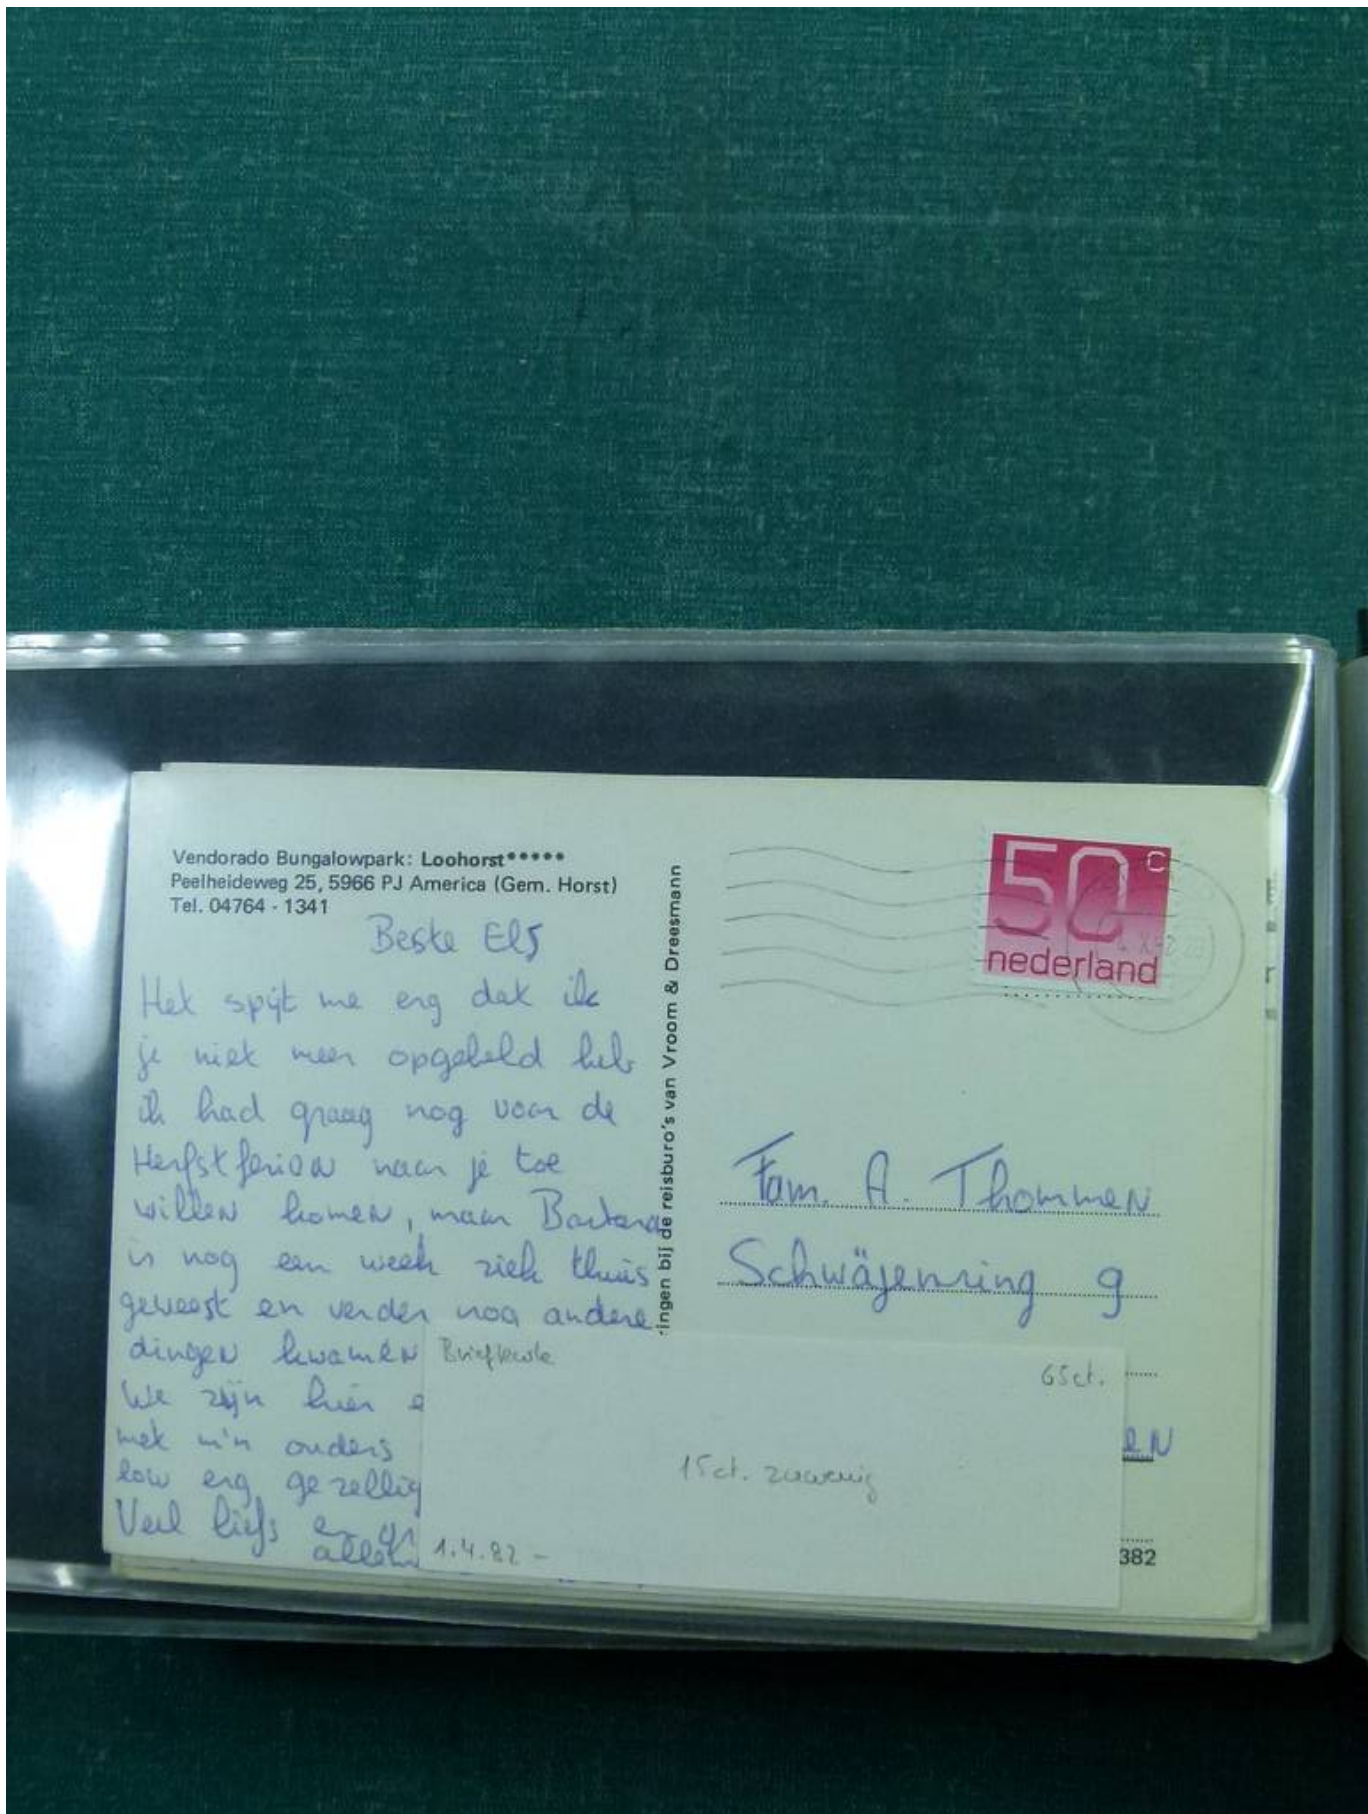 Vendorado Bungalowpark: Loohorst*****
Peelheideweg 25, 5966 PJ America (Gem. Horst)
Tel. 04764 - 1341
Beste Els
Het spijt me erg dat ik
je niet meer opgebeld heb
ik had graag nog voor de
Herfstferien naar je toe
willen komen, maar Barbara
is nog een week ziek thuis
geweest en verder nog andere
dingen kwamen
We zijn hier
met m'n ouders
low erg gezellig
Veel liefs
allen
ringen bij de reisburo's van Vroom & Dreesmann
50c
nederland
Fam. A. Thommen
Schwäjenring 9
en
382
Briefkarte
65ct.
15ct. zuwenig
1.4.82 -